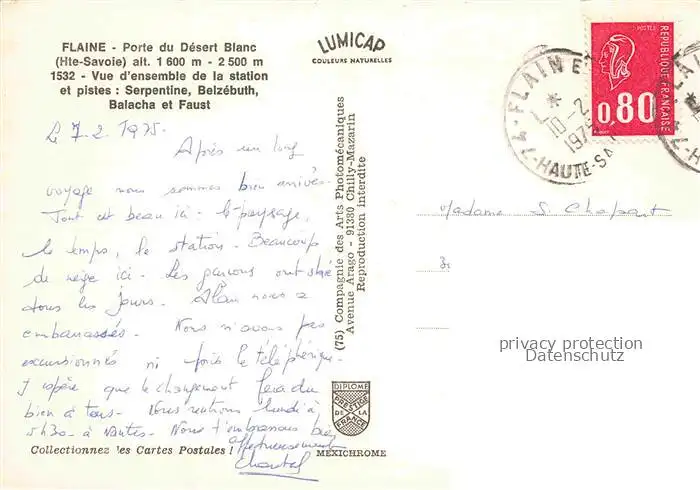 FLAINE - Porte du Désert Blanc
(Hte-Savoie) alt. 1 600 m - 2 500 m
1532 - Vue d'ensemble de la station
et pistes : Serpentine, Belzébuth,
Balacha et Faust
LUMICAP
COULEURS NATURELLES
Le 7.2.1975.
Après un long
voyage nous sommes bien arrivés.
Tout est beau ici - le paysage,
le temps, la station - Beaucoup
de neige ici - Les garçons ont skié
tous les jours. Alain nous a
embarrassés. Nous n'avons pas
excursionnés ni pris le téléphérique.
J'espère que le changement fera du
bien à tous. Nous rentrons lundi à
5h30 à Nantes. Nous t'embrassons bien
affectueusement
Chantal
Collectionnez les Cartes Postales !
(75) Compagnie des Arts Photomécaniques
Avenue Arago - 91380 Chilly-Mazarin
Reproduction Interdite
DIPLOME
PRESTIGE
DE LA
FRANCE
MEXICHROME
POSTES
REPUBLIQUE FRANÇAISE
0,80
74-FLAINE
10-2
1975
HAUTE-SA
Madame S. Chapart
privacy protection
Datenschutz